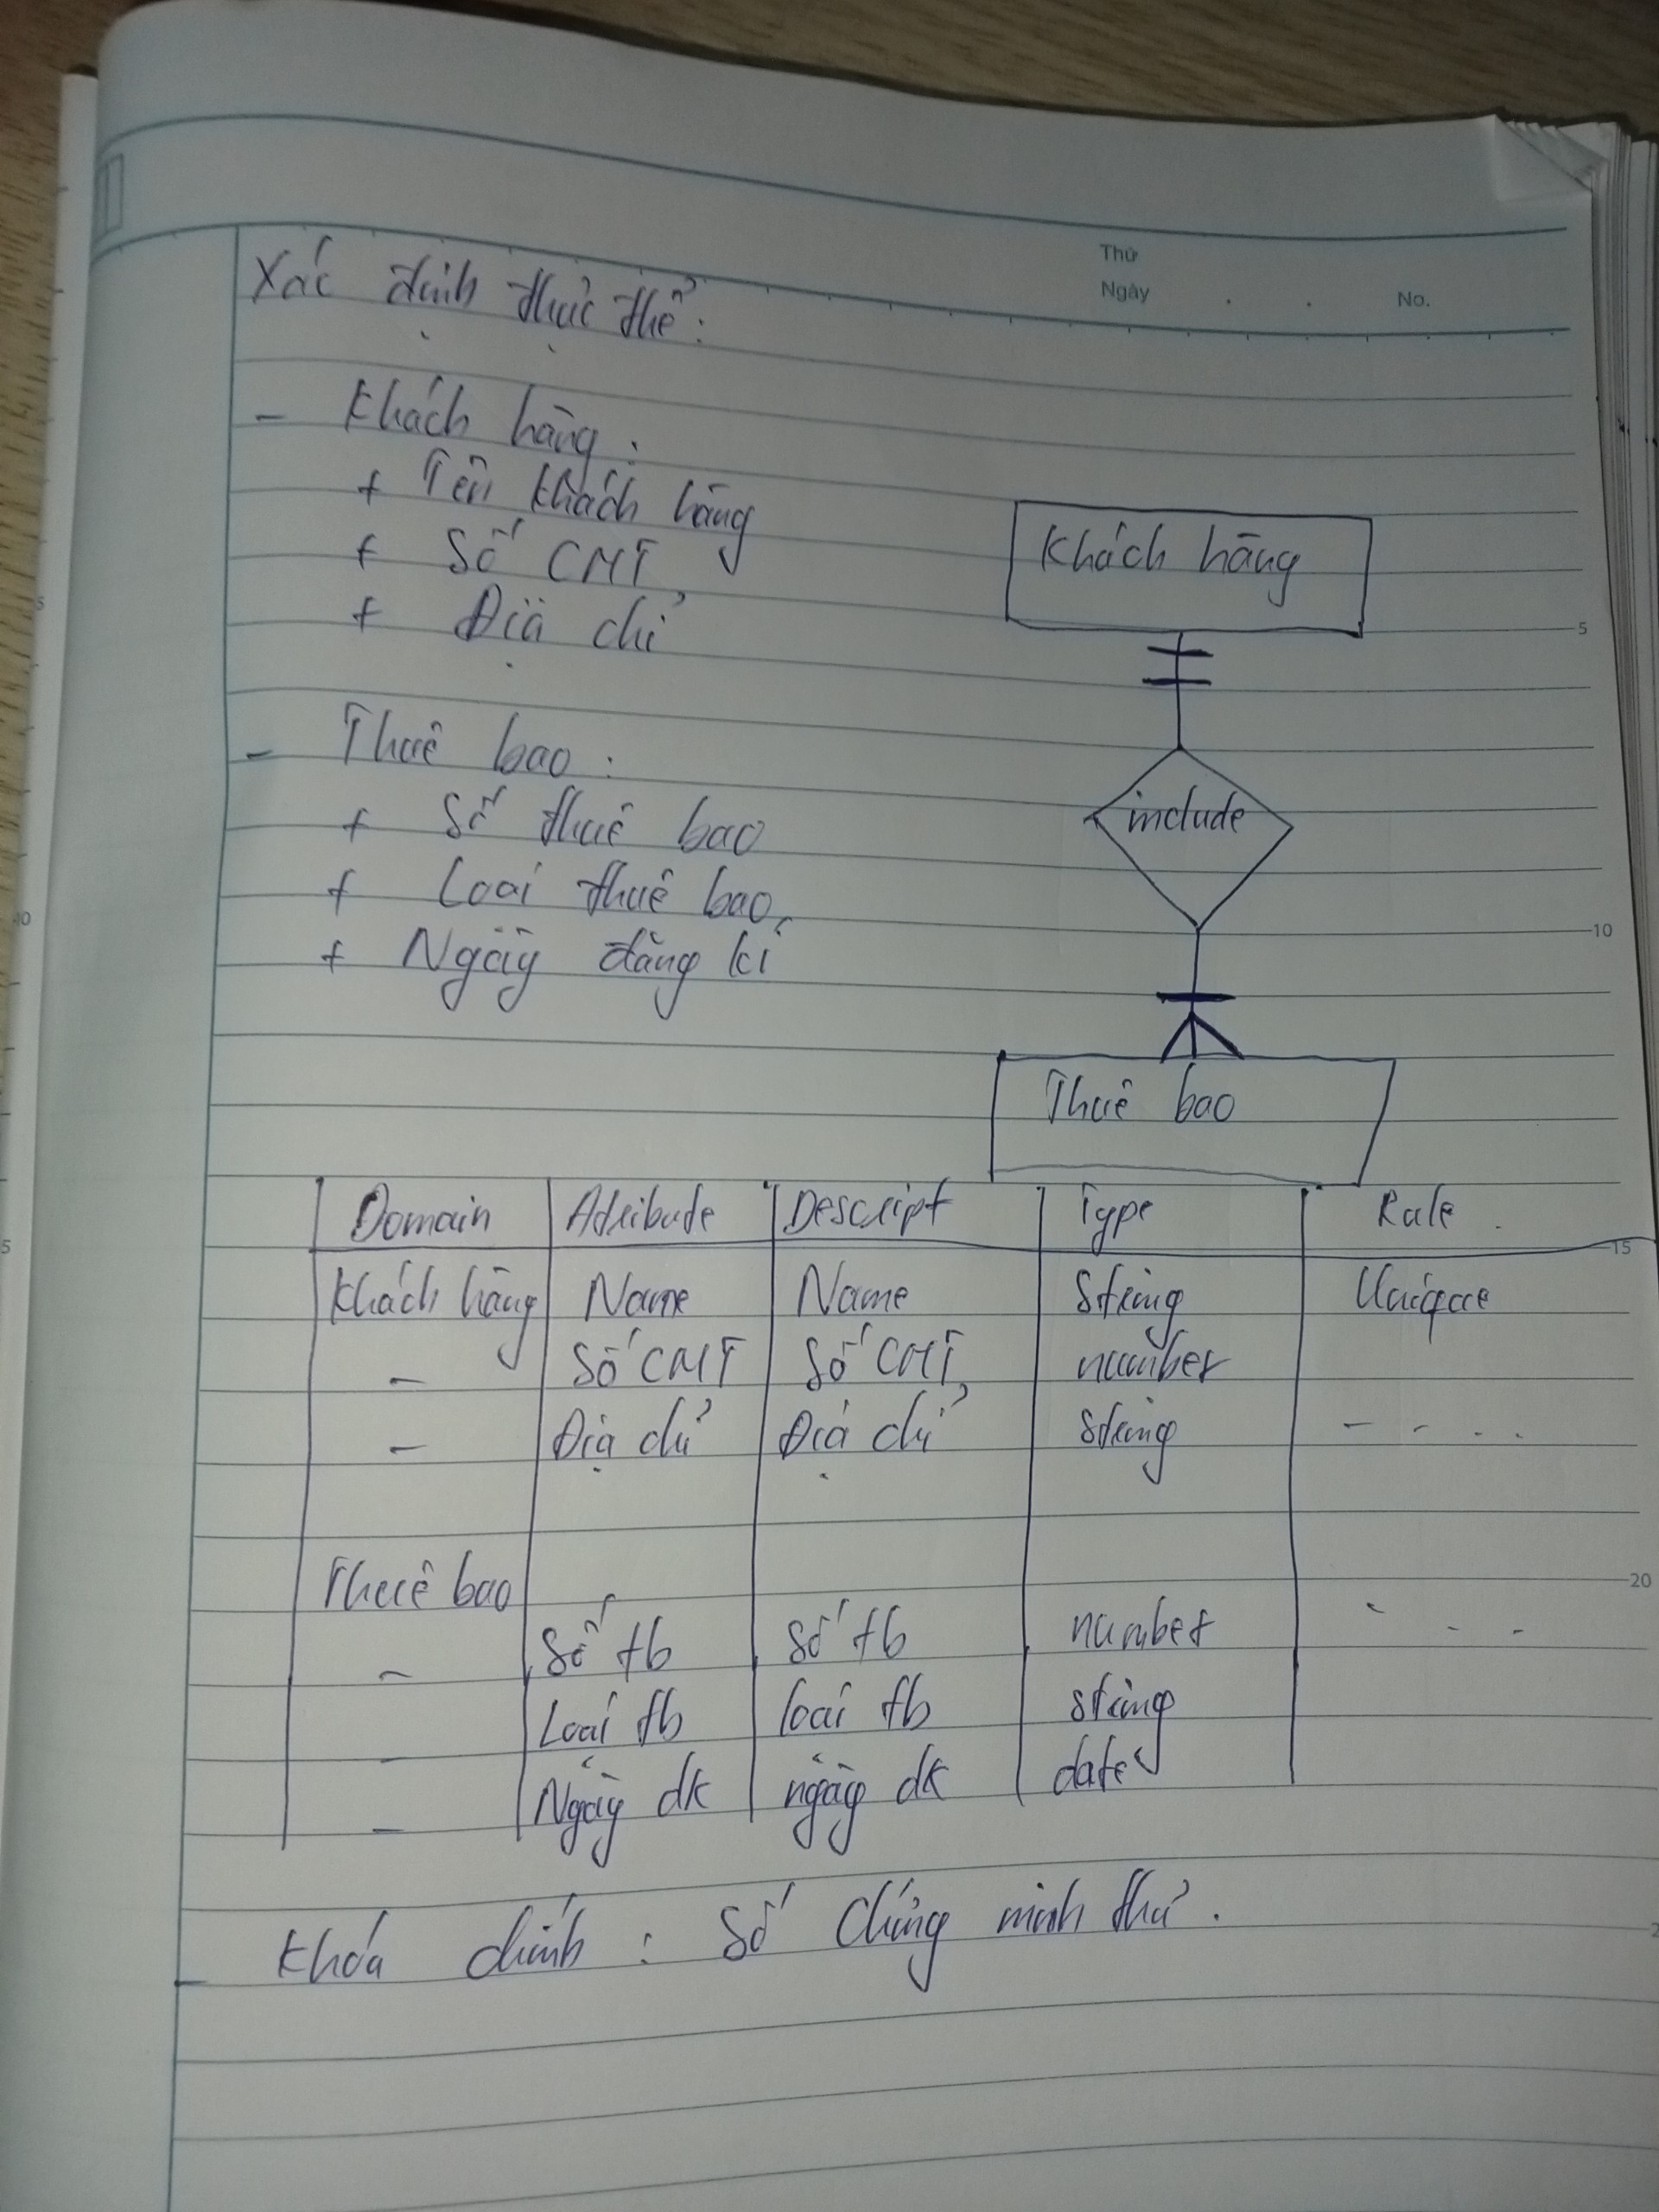 Thứ
Ngày . . No.
Xác định thực thể:
- Khách hàng:
+ Tên khách hàng
+ Số CMT
+ Địa chỉ
- Thuê bao:
+ Số thuê bao
+ Loại thuê bao
+ Ngày đăng kí
Khách hàng
include
Thuê bao
Domain Attribute Descript Type Rule
Khách hàng Name Name String Unique
- Số CMT Số CMT number
- Địa chỉ Địa chỉ string - - - -
Thuê bao
- Số tb Số tb number - - -
- Loại tb loại tb string
- Ngày đk ngày đk date
- Khóa chính: Số Chứng minh thư.
5
10
15
20